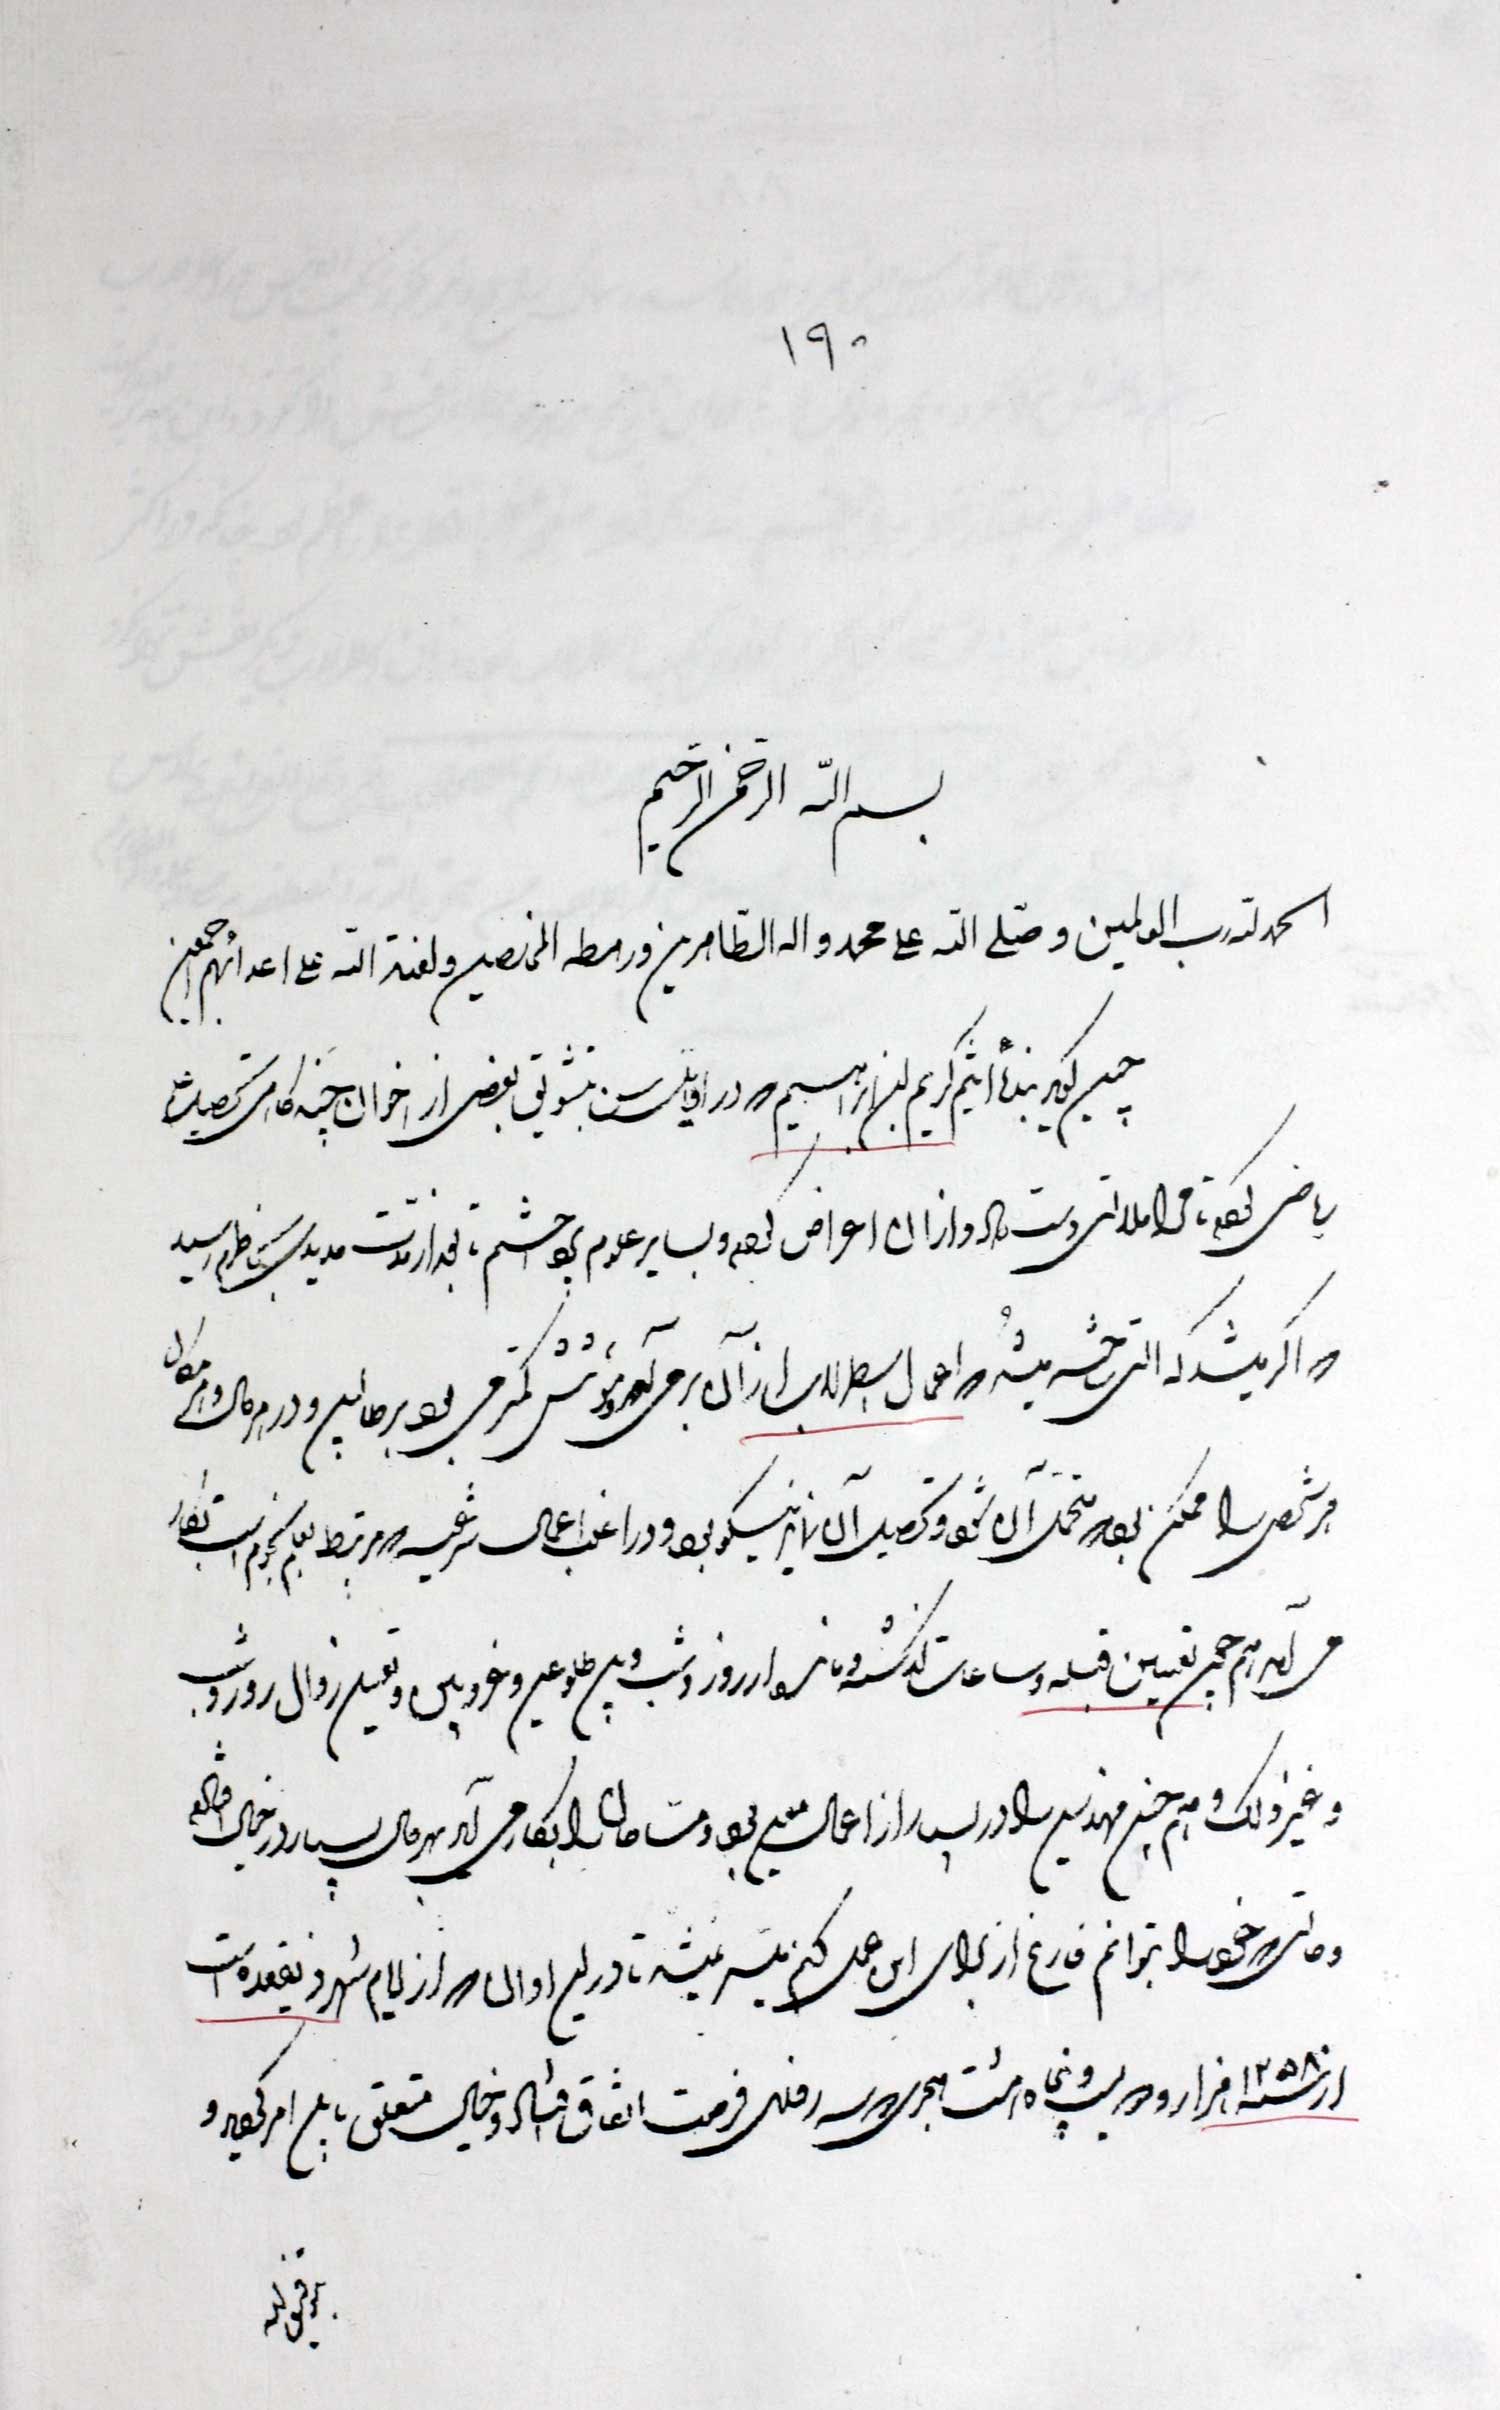 ۱۹۰
بسم الله الرحمن الرحیم
الحمد لله رب العالمین و صلی الله علی محمد و اله الطاهرین و رهطه المخلصین و لعنة الله علی اعدائهم اجمعین
چنین گوید بندهٔ اثیم کریم بن ابراهیم که در اوایل سن بتشویق بعضی از اخوان چند گاهی تحصیل علم
ریاضی کرده تا فی الجمله دست داد و از ان اعراض کرده و بسایر علوم پرداختم تا بعد از مدت مدیدی بخاطرم رسید
که اگر میشد که التی ساخته میشد که اعمال اسطرلاب از آن برمی آمد و مؤنتش کمتر می بود بر طالبین و در هر حال و هر مکان
هر شخص را ممکن بود که متحمل آن شود و تحصیل آن نماید نیکو بود و در اغلب اعمال شرعیه که مرتبط بعلم نجوم است بکار
می آمد هم چون تعیین قبله و ساعات گذشته و مانده از روز و شب و بین طلوعین و غروبین و تعیین زوال روز و شب
و غیر ذلک و هم چنین مهندسین را در بسیار از اعمال معین بود و مساحان را بکار می آمد بهر حال بسیار در خیال افتاده
و حالتی که خود را بتوانم فارغ از برای این عمل کنم میسر نمیشد تا در این اوان که از ایام شهر ذیقعده است
از سنه ۱۲۵۸ هزار و دویست و پنجاه و هشت هجری که سه روزی فرصت اتفاق افتاد و خیال متعلق باین امر گردید و
بتوفیق الله